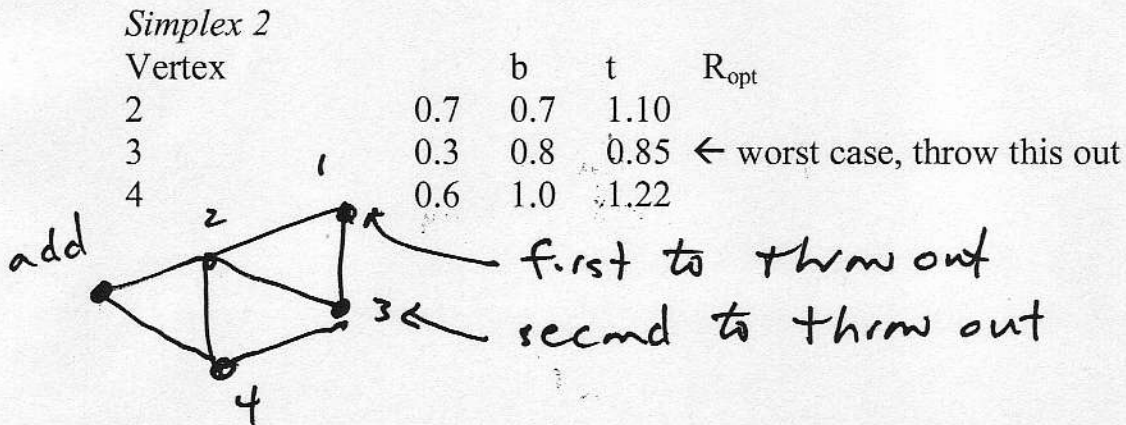 Simplex 2
Vertex b t R_opt
2 0.7 0.7 1.10
3 0.3 0.8 0.85 ← worst case, throw this out
4 0.6 1.0 1.22
1
2
add
first to throw out
3
second to throw out
4